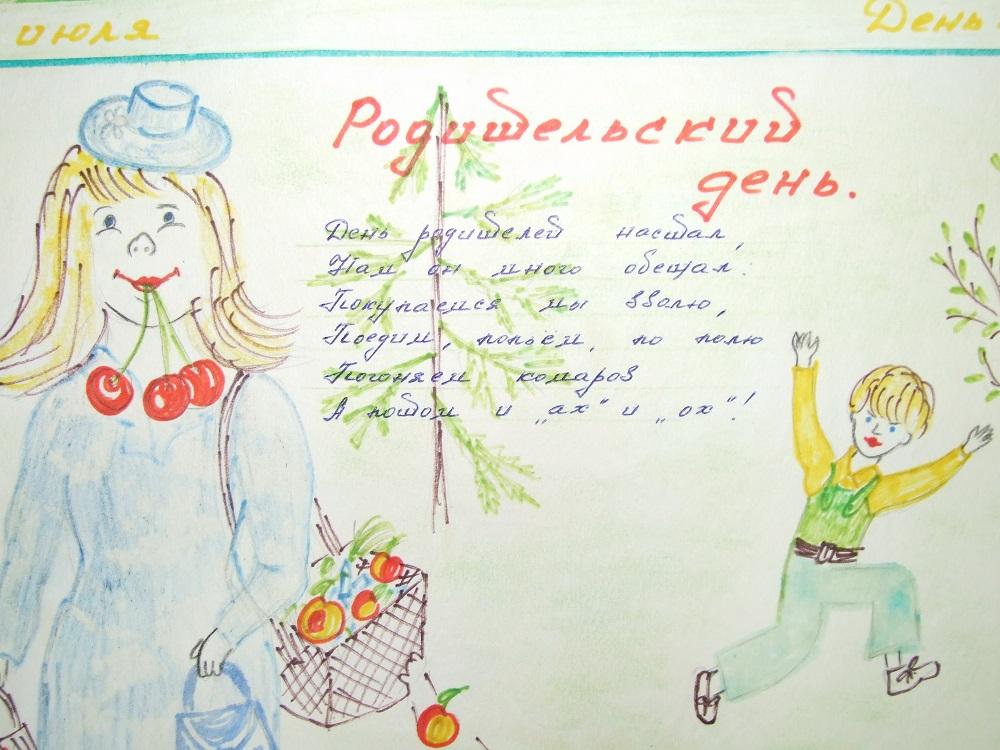 июля
День
Родительский
день.
День родителей настал,
Нам он много обещал.
Покупаемся мы вволю,
Поедим, попьём, по полю
Погоняем комаров
А потом и „ах“ и „ох“!